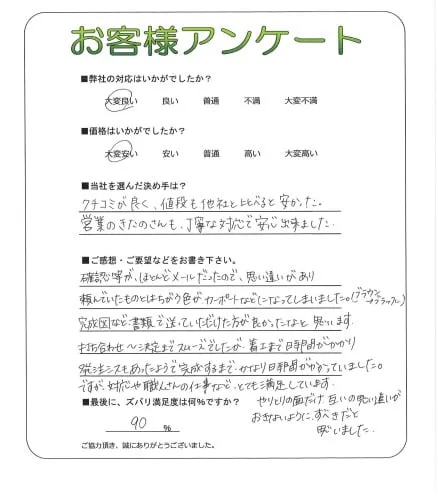 お客様アンケート
■弊社の対応はいかがでしたか？
大変良い 良い 普通 不満 大変不満
■価格はいかがでしたか？
大変安い 安い 普通 高い 大変高い
■当社を選んだ決め手は？
クチコミが良く、値段も他社と比べると安かった。
営業のきたのさんも、丁寧な対応で安心出来ました。
■ご感想・ご要望などをお書き下さい。
確認等が、ほとんどメールだったので、思い違いがあり
頼んでいたものとはちがう色がカーポートなどになってしまいました。(ブラウン→ブラック)
完成図など書類で送っていただけた方が良かったなと思います。
打ち合わせ〜決定までスムーズでしたが、着工まで日時間がかかり
発注ミスもあったようで完成するまで、かなり日時間がかかっていました。
ですが、対応や職人さんの仕事など、とても満足しています。
やりとりの面だけ互いの思い違いが
おきないように、すべきだと
思いました。
■最後に、ズバリ満足度は何％ですか？
90 ％
ご協力頂き、誠にありがとうございました。